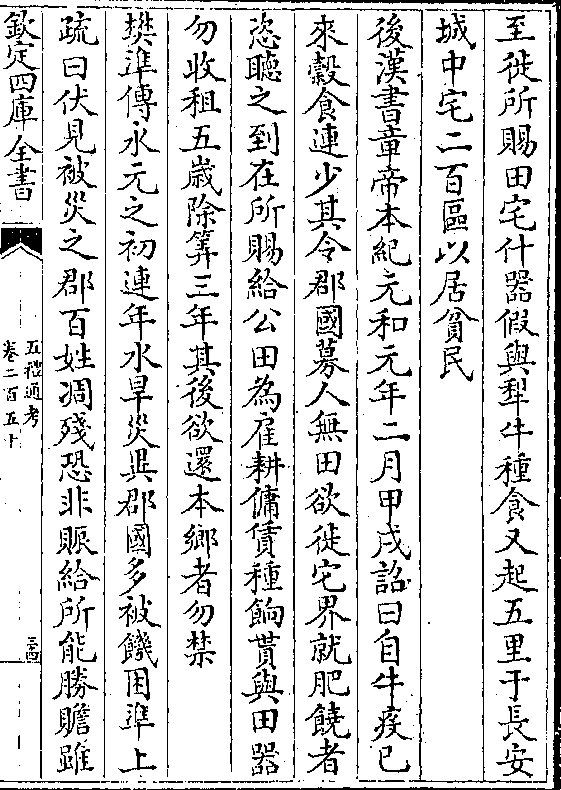 至徙所賜田宅什器假與犁牛種食又起五里于長安
城中宅二百區以居貧民
後漢書章帝本紀元和元年二月甲戌詔曰自牛疫已
來穀食連少其令郡國募人無田欲徙宅界就肥饒者
恣聽之到在所賜給公田為雇耕傭賃種餉貰與田器
勿收租五歲除筭三年其後欲還本鄉者勿禁
樊準傳永元之初連年水旱災異郡國多被饑困準上
疏曰伏見被災之郡百姓凋殘恐非賑給所能勝贍雖
欽定四庫全書
五禮通考
卷二百五十
三四